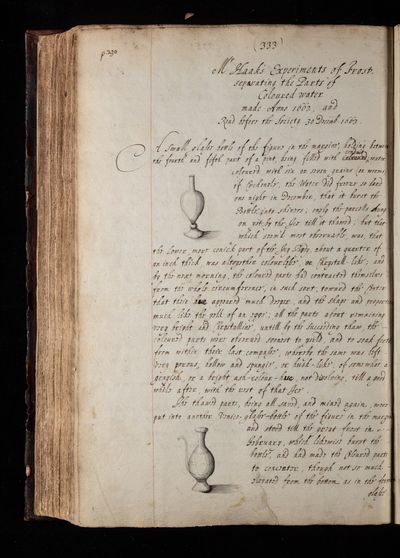 (333)
p. 330
Mr Haaks Experiments of Frost,
separating the Parts of
Coloured water
made Anno 1662, and
Read before the Society 30 Decemb 1663.
A Small glass bottle of the figure in the margine, holding between
the fourth and fifth part of a pint, being filled with coloured water
coloured with six or seven grains (as
of Cochenele, the Water did freeze so hard
one night in December, that it burst the
Bottle into shivers, only the parcells
on yet by the Ice till it thawed; but that
which seem'd most observable, was, that
the lower more conick part of the Icy Body, about a quarter of
an inch thick, was altogether colourlesse, or Chrystall-like; and
by the next morning, the coloured parts had contracted themselves
from the whole circumference, in such sort, toward the Center
that their hue appeared much deeper, and the shape and proportion
much like the yolk of an egge; all the parts about remaining
very bright and Chrystalline, untill by the succeeding thaw, the
coloured parts were observed soonest to yield, and to soak forth
from within their last compasse, whereby the same was left
very porous, hollow and spungie, or husk-like, of somewhat a
greyish, or a bright ash-colour-hue, not dissolving, till a good
while after, with the rest of that Ice.
The thawed parts, being all saved, and mixed again, were
put into another Venice-glasse-bottle of the figure in the margine
and stood till the great frost in
February, which likewise burst the
bottle, and had made the Coloured parts
to concenter, though not so much
elevated from the bottom, as in the
glasse